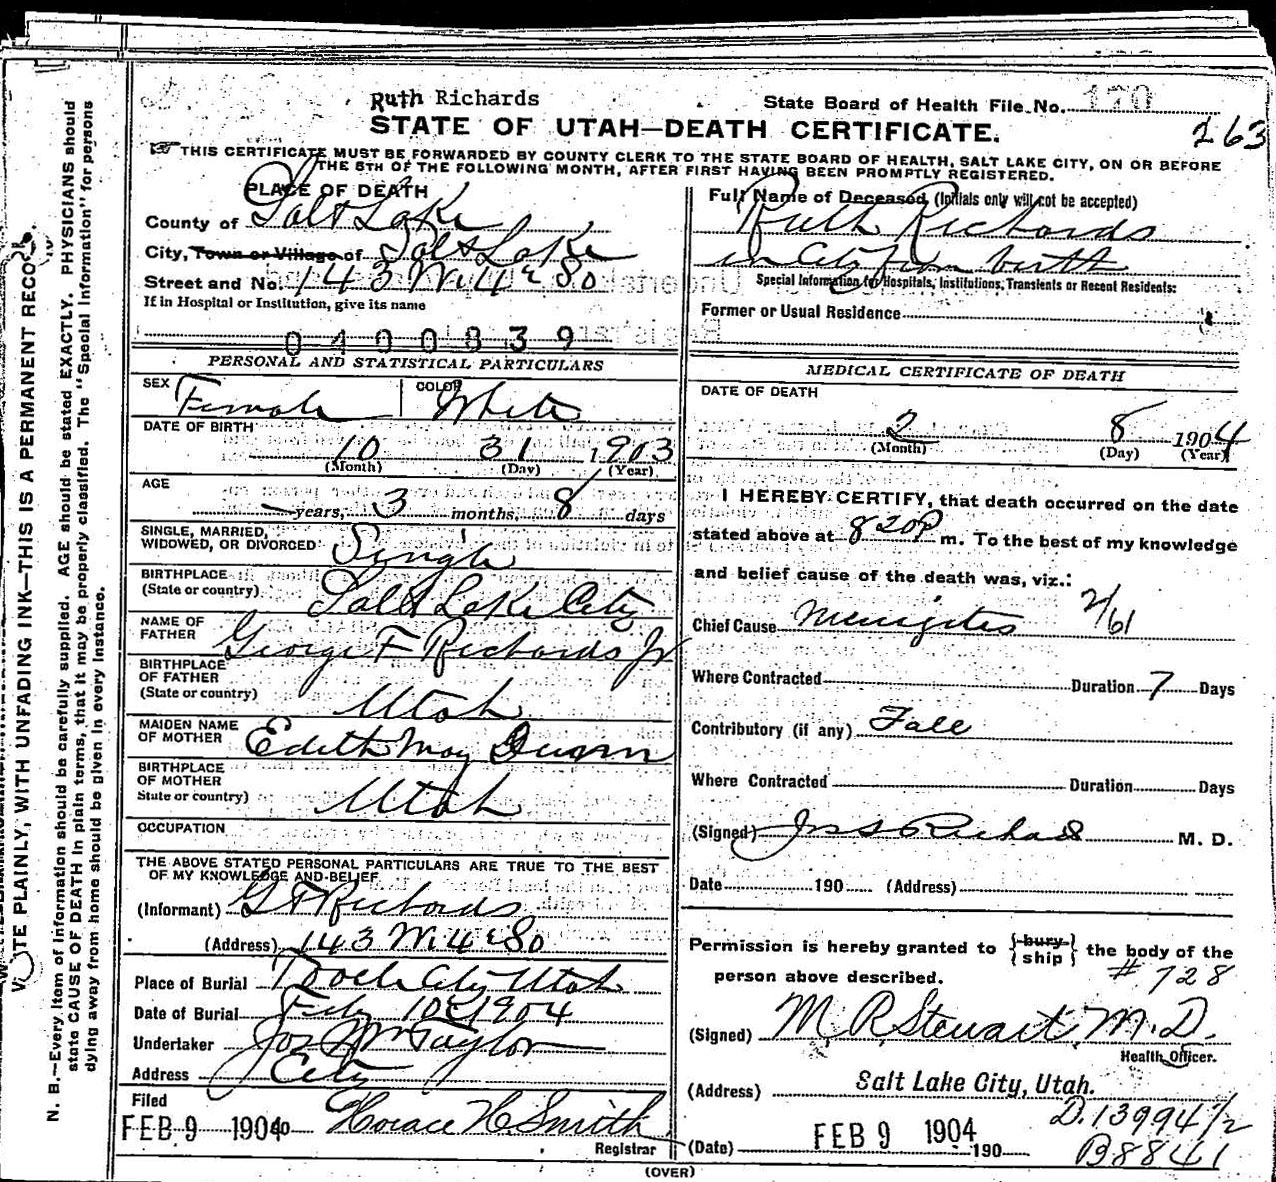 Ruth Richards
State Board of Health File No. 170
STATE OF UTAH—DEATH CERTIFICATE.
263
THIS CERTIFICATE MUST BE FORWARDED BY COUNTY CLERK TO THE STATE BOARD OF HEALTH, SALT LAKE CITY, ON OR BEFORE
THE 5TH OF THE FOLLOWING MONTH, AFTER FIRST HAVING BEEN PROMPTLY REGISTERED.
PLACE OF DEATH
County of Salt Lake
City, Town or Village of Salt Lake
Street and No. 143 W. 4th So
If in Hospital or Institution, give its name
0400839
Full Name of Deceased (Initials only will not be accepted)
Ruth Richards
in City from birth
Special Information for Hospitals, Institutions, Transients or Recent Residents:
Former or Usual Residence
PERSONAL AND STATISTICAL PARTICULARS
SEX Female
COLOR White
DATE OF BIRTH
10 31 1903
(Month) (Day) (Year)
AGE
— years, 3 months, 8 days
SINGLE, MARRIED,
WIDOWED, OR DIVORCED Single
BIRTHPLACE
(State or country) Salt Lake City
NAME OF
FATHER George F Richards Jr
BIRTHPLACE
OF FATHER
(State or country) Utah
MAIDEN NAME
OF MOTHER Edith May
BIRTHPLACE
OF MOTHER
State or country) Utah
OCCUPATION
THE ABOVE STATED PERSONAL PARTICULARS ARE TRUE TO THE BEST
OF MY KNOWLEDGE AND BELIEF
(Informant) G F Richards
(Address) 143 W. 4th So
Place of Burial City Utah
Date of Burial Feby 10th 1904
Undertaker Jos Wm Taylor
Address City
Filed
FEB 9 1904
Horace H. Smith
Registrar
MEDICAL CERTIFICATE OF DEATH
DATE OF DEATH
2 8 1904
(Month) (Day) (Year)
I HEREBY CERTIFY, that death occurred on the date
stated above at 820P m. To the best of my knowledge
and belief cause of the death was, viz.:
Chief Cause Menigites 2/61
Where Contracted Duration 7 Days
Contributory (if any) Fall
Where Contracted Duration Days
(Signed) Jos S Richards M. D.
Date 190 (Address)
Permission is hereby granted to {bury ship} the body of the
person above described. # 728
(Signed) M. R. Stewart, M.D.
Health Officer.
(Address) Salt Lake City, Utah.
D.13994 1/2
(Date) FEB 9 1904 190
B8841
(OVER)
WRITE PLAINLY, WITH UNFADING INK—THIS IS A PERMANENT RECORD.
N. B.—Every item of information should be carefully supplied. AGE should be stated EXACTLY. PHYSICIANS should
state CAUSE OF DEATH in plain terms, that it may be properly classified. The "Special Information" for persons
dying away from home should be given in every instance.